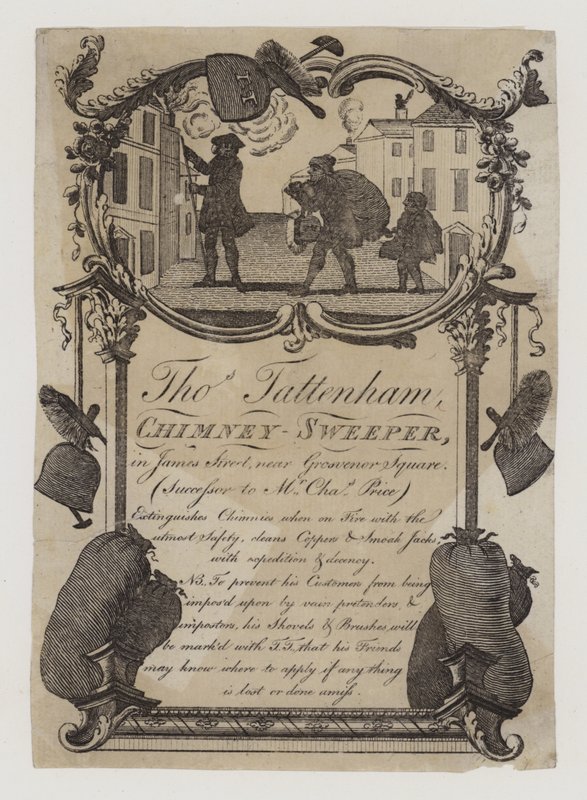 T T
Thos. Tattenham,
CHIMNEY-SWEEPER,
in James Street, near Grosvenor Square.
(Successor to Mr. Chas. Price)
Extinguishes Chimnies when on Fire with the
utmost Safety, cleans Coppers & Smoak Jacks,
with expedition & decency.
NB. To prevent his Customers from being
impos'd upon by vain pretenders, &
impostors, his Shovels & Brushes will
be mark'd with T.T. that his Friends
may know where to apply if any thing
is lost or done amiss.